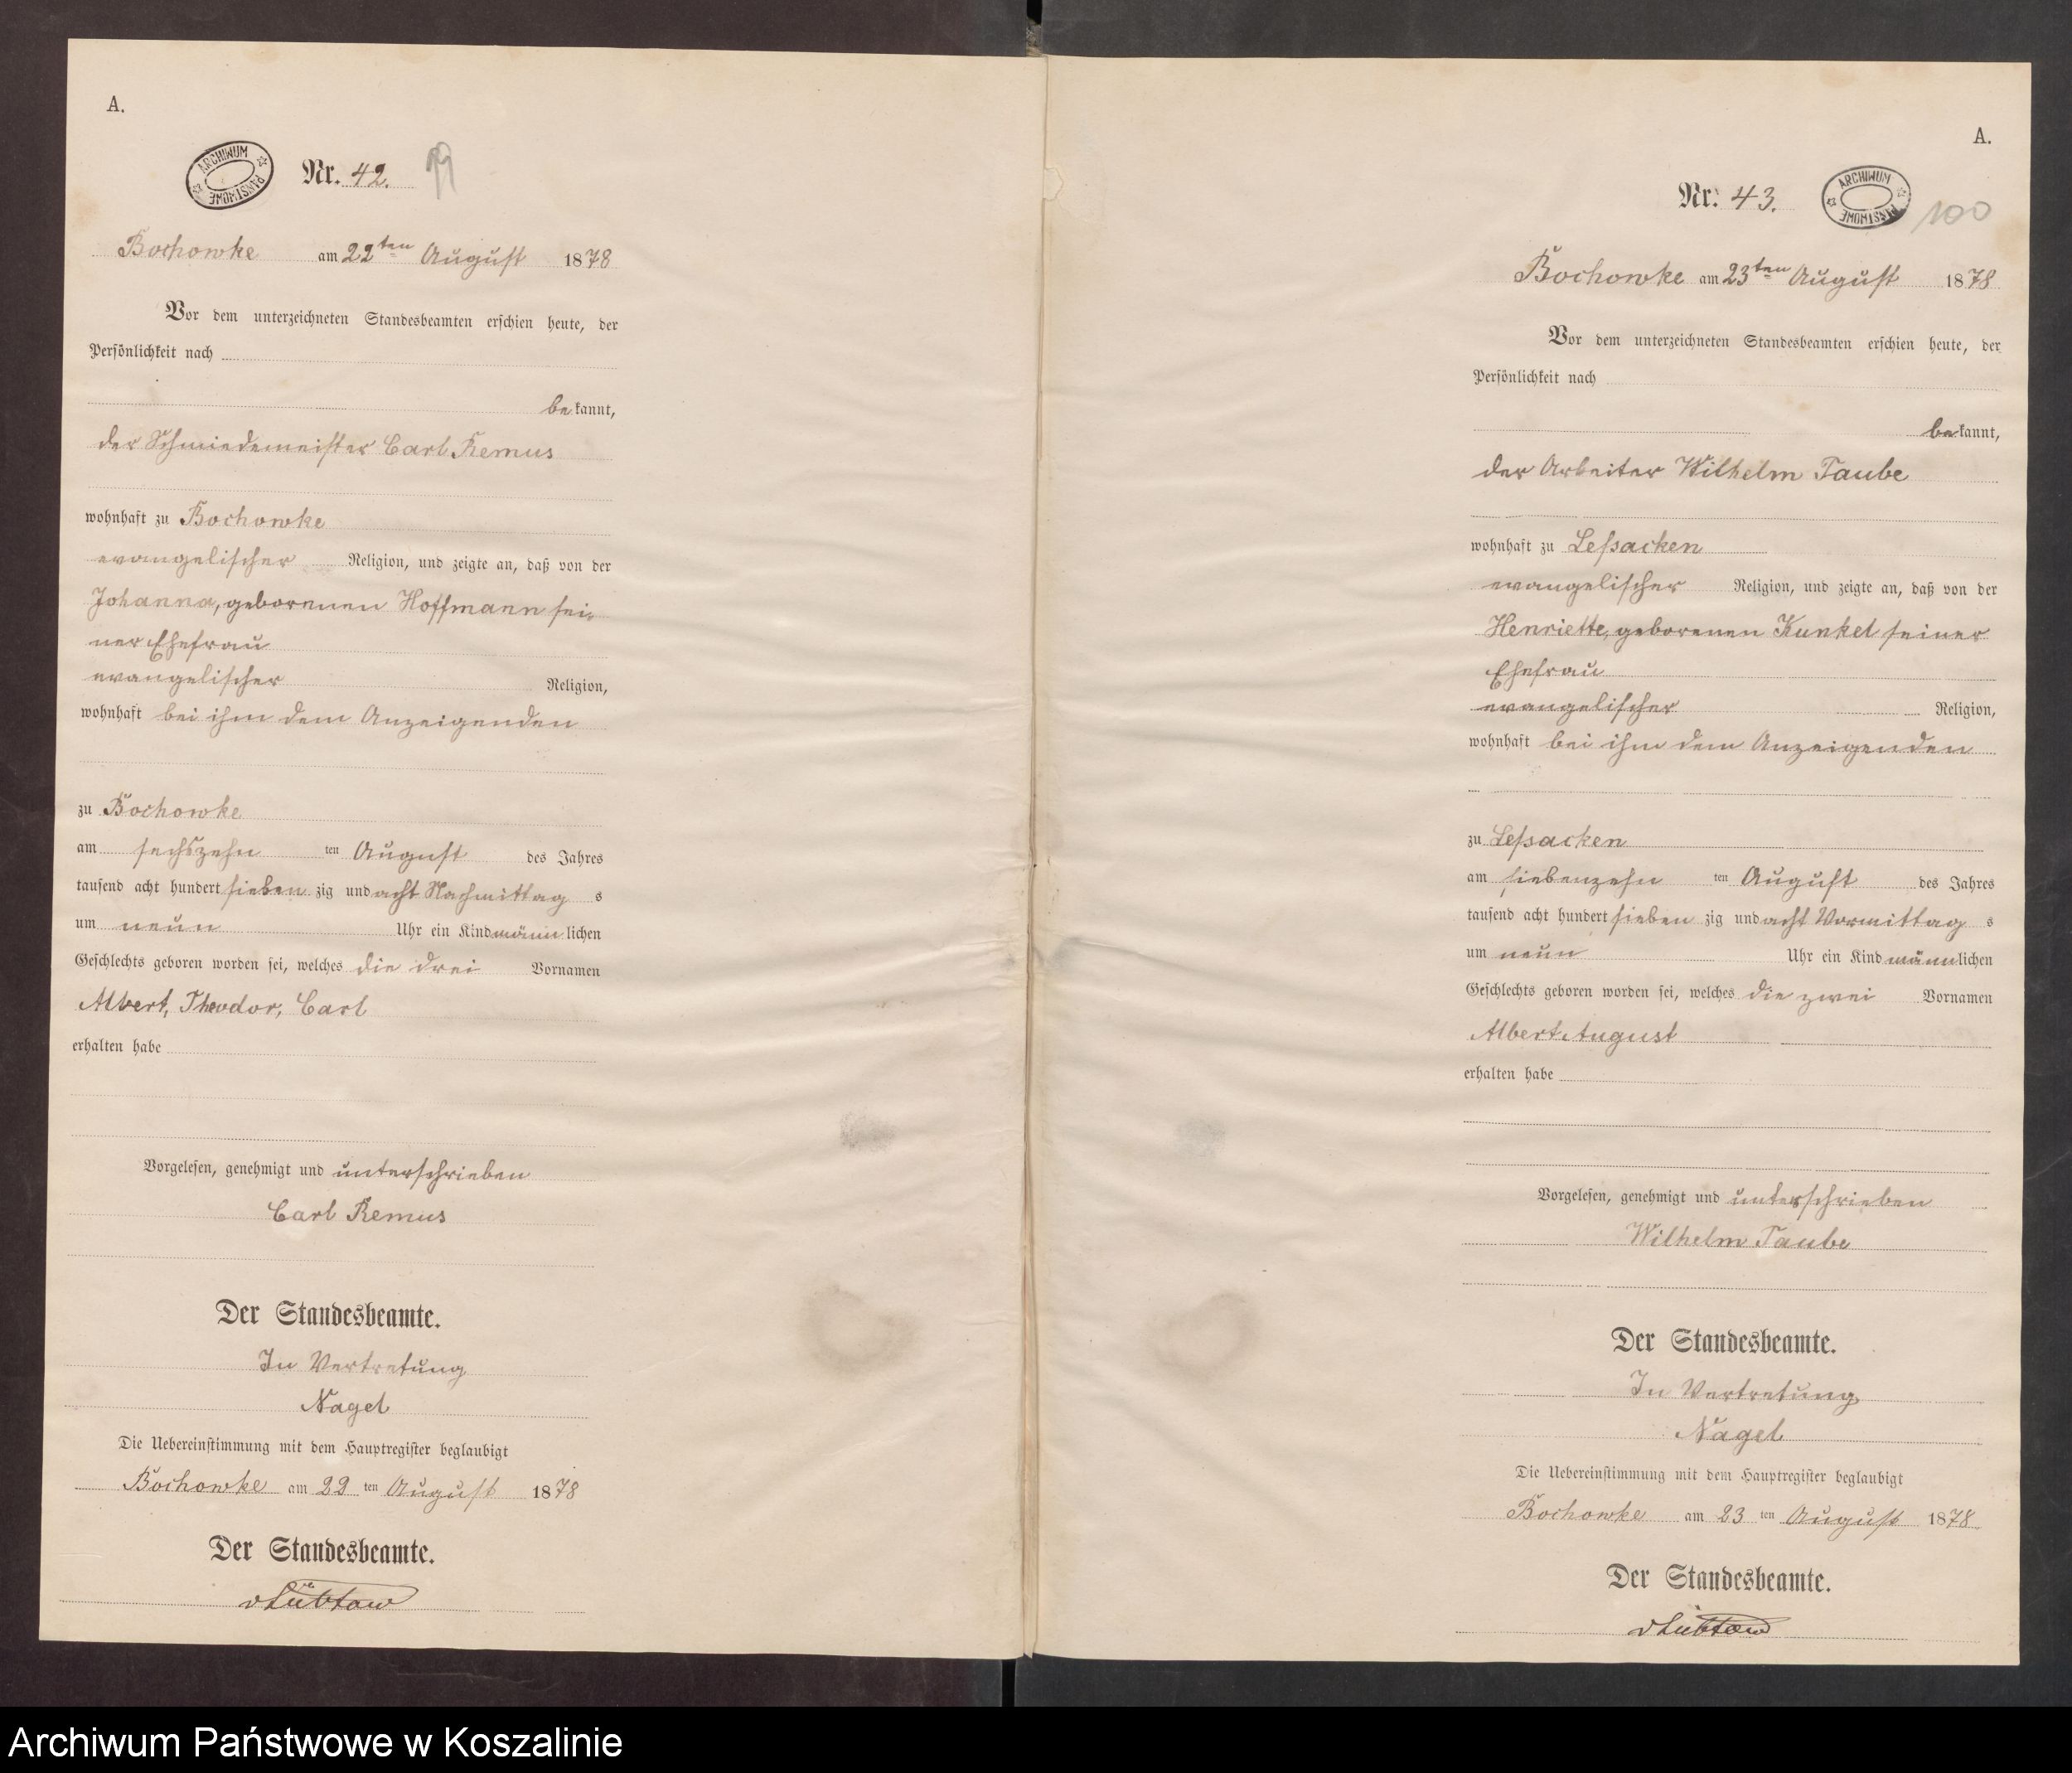 A.
ARCHIWUM PAŃSTWOWE
Nr. 42. 99
Bochowke am 22ten August 1878
Vor dem unterzeichneten Standesbeamten erschien heute, der
Persönlichkeit nach
bekannt,
der Schmiedemeister Carl Remus
wohnhaft zu Bochowke
evangelischer Religion, und zeigte an, daß von der
Johanna, geborenen Hoffmann sei-
ner Ehefrau
evangelischer Religion,
wohnhaft bei ihm dem Anzeigenden
zu Bochowke
am sechszehn ten August des Jahres
tausend acht hundert sieben zig und acht Nachmittag s
um neun Uhr ein Kind männlichen
Geschlechts geboren worden sei, welches die drei Vornamen
Albert, Theodor, Carl
erhalten habe
Vorgelesen, genehmigt und unterschrieben
Carl Remus
Der Standesbeamte.
In Vertretung
Nagel
Die Uebereinstimmung mit dem Hauptregister beglaubigt
Bochowke am 22 ten August 1878
Der Standesbeamte.
vLübtow
A.
Nr. 43. ARCHIWUM PAŃSTWOWE 100
Bochowke am 23ten August 1878
Vor dem unterzeichneten Standesbeamten erschien heute, der
Persönlichkeit nach
bekannt,
der Arbeiter Wilhelm Taube
wohnhaft zu Leßacken
evangelischer Religion, und zeigte an, daß von der
Henriette, geborenen Kunkel seiner
Ehefrau
evangelischer Religion,
wohnhaft bei ihm dem Anzeigenden
zu Leßacken
am siebenzehn ten August des Jahres
tausend acht hundert sieben zig und acht Vormittag s
um neun Uhr ein Kind männlichen
Geschlechts geboren worden sei, welches die zwei Vornamen
Albert August
erhalten habe
Vorgelesen, genehmigt und unterschrieben
Wilhelm Taube
Der Standesbeamte.
In Vertretung
Nagel
Die Uebereinstimmung mit dem Hauptregister beglaubigt
Bochowke am 23 ten August 1878
Der Standesbeamte.
vLübtow
Archiwum Państwowe w Koszalinie